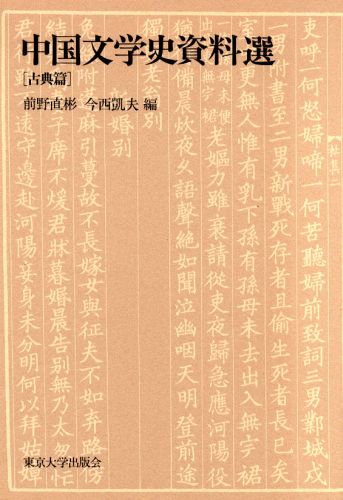 中国文学史資料選
[古典篇]
前野直彬 今西凱夫 編
吏呼一何怒婦啼一何苦聽婦前致詞三男鄴城戍
一男附書至二男新戰死存者且偷生死者長已矣
更無人惟有乳下孫有孫母未去出入無完裙
老嫗力雖衰請從吏夜歸急應河陽役
備晨炊夜久語聲絕如聞泣幽咽天明登前途
獨與老翁別
婚別
附蓬麻引蔓故不長嫁女與征夫不如棄路傍
子席不煖君牀暮婚晨告別無乃太怱忙
遠守邊赴河陽妾身未分明何以拜姑嫜
東京大学出版会